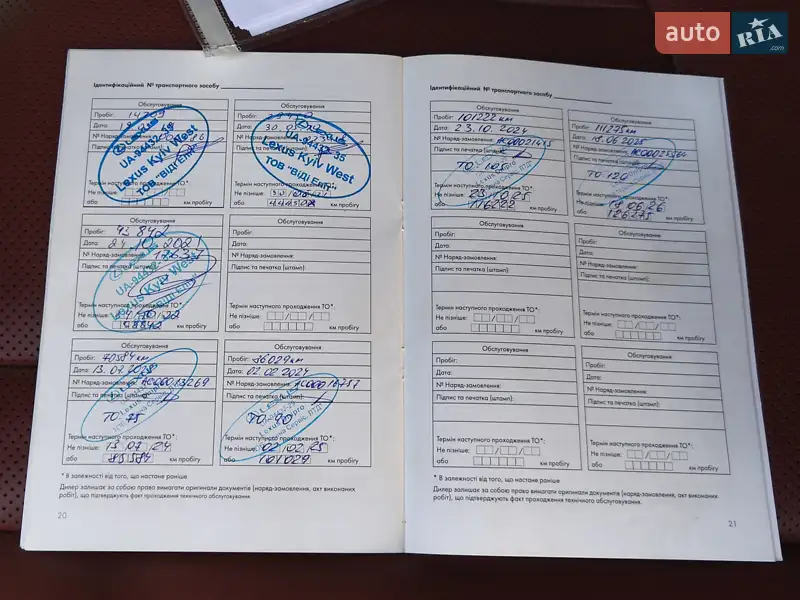 auto RIA .com
Ідентифікаційний № транспортного засобу
Обслуговування
Пробіг:
Дата:
№ Наряд-
Підпис та
UA-94432-35
Lexus Kyiv West
Термін
Не пізніше:
або
км пробігу
Обслуговування
Пробіг:
Дата: 30.
№ Наряд-
Підпис та
UA-94432-35
Lexus Kyiv West
ТОВ "ВІДІ
Термін наступного
Не пізніше:
або
км пробігу
Обслуговування
Пробіг: 43842
Дата: 21.10.202
№ Наряд-замовлення: 17637
Підпис та печатка (штамп):
Lexus Kyiv West
Термін наступного проходження ТО*:
Не пізніше:
або
км пробігу
Обслуговування
Пробіг:
Дата:
№ Наряд-замовлення:
Підпис та печатка (штамп):
Термін наступного проходження ТО*:
Не пізніше:
або
км пробігу
Обслуговування
Пробіг: 70584 km
Дата: 13.07.2023
№ Наряд-замовлення: АС00013269
Підпис та печатка (штамп):
ТО 75
Термін наступного проходження ТО*:
Не пізніше: 13 07 24
або 85584 км пробігу
Обслуговування
Пробіг: 86029 km
Дата: 02.02.2024
№ Наряд-замовлення: АС00016757
Підпис та печатка (штамп):
ТО-90
Термін наступного проходження ТО*:
Не пізніше: 02 02 25
або 101029 км пробігу
* В залежності від того, що настане раніше
Дилер залишає за собою право вимагати оригінали документів (наряд-замовлення, акт виконаних
робіт), що підтверджують факт проходження технічного обслуговування.
20
Ідентифікаційний № транспортного засобу
Обслуговування
Пробіг: 101222 km
Дата: 23.10.2024
№ Наряд-замовлення: АС00021475
Підпис та печатка (штамп):
ТО-105
Термін наступного проходження ТО*:
Не пізніше: 23 10 25
або 116222 км пробігу
Обслуговування
Пробіг: 111275 km
Дата: 18.06.2025
№ Наряд-замовлення:
Підпис та печатка (штамп):
ТО 120
Термін наступного проходження ТО*:
Не пізніше: 18 06 26
або 126275 км пробігу
Обслуговування
Пробіг:
Дата:
№ Наряд-замовлення:
Підпис та печатка (штамп):
Термін наступного проходження ТО*:
Не пізніше:
або
км пробігу
Обслуговування
Пробіг:
Дата:
№ Наряд-замовлення:
Підпис та печатка (штамп):
Термін наступного проходження ТО*:
Не пізніше:
або
км пробігу
Обслуговування
Пробіг:
Дата:
№ Наряд-замовлення:
Підпис та печатка (штамп):
Термін наступного проходження ТО*:
Не пізніше:
або
км пробігу
Обслуговування
Пробіг:
Дата:
№ Наряд-замовлення:
Підпис та печатка (штамп):
Термін наступного проходження ТО*:
Не пізніше:
або
км пробігу
* В залежності від того, що настане раніше
Дилер залишає за собою право вимагати оригінали документів (наряд-замовлення, акт виконаних
робіт), що підтверджують факт проходження технічного обслуговування.
21